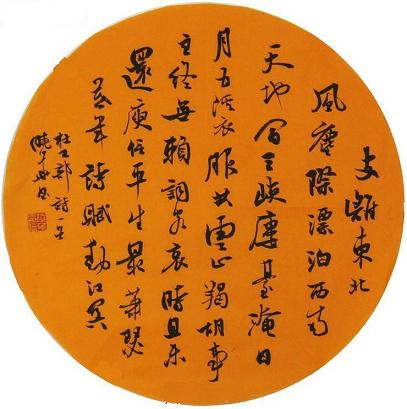 支離東北
風塵際漂泊西南
天地間三峽樓臺淹日
月五溪衣服共雲山羯胡事
主終無賴詞客哀時且未
還庾信平生最蕭瑟
暮年詩賦動江關
杜工部詩一首